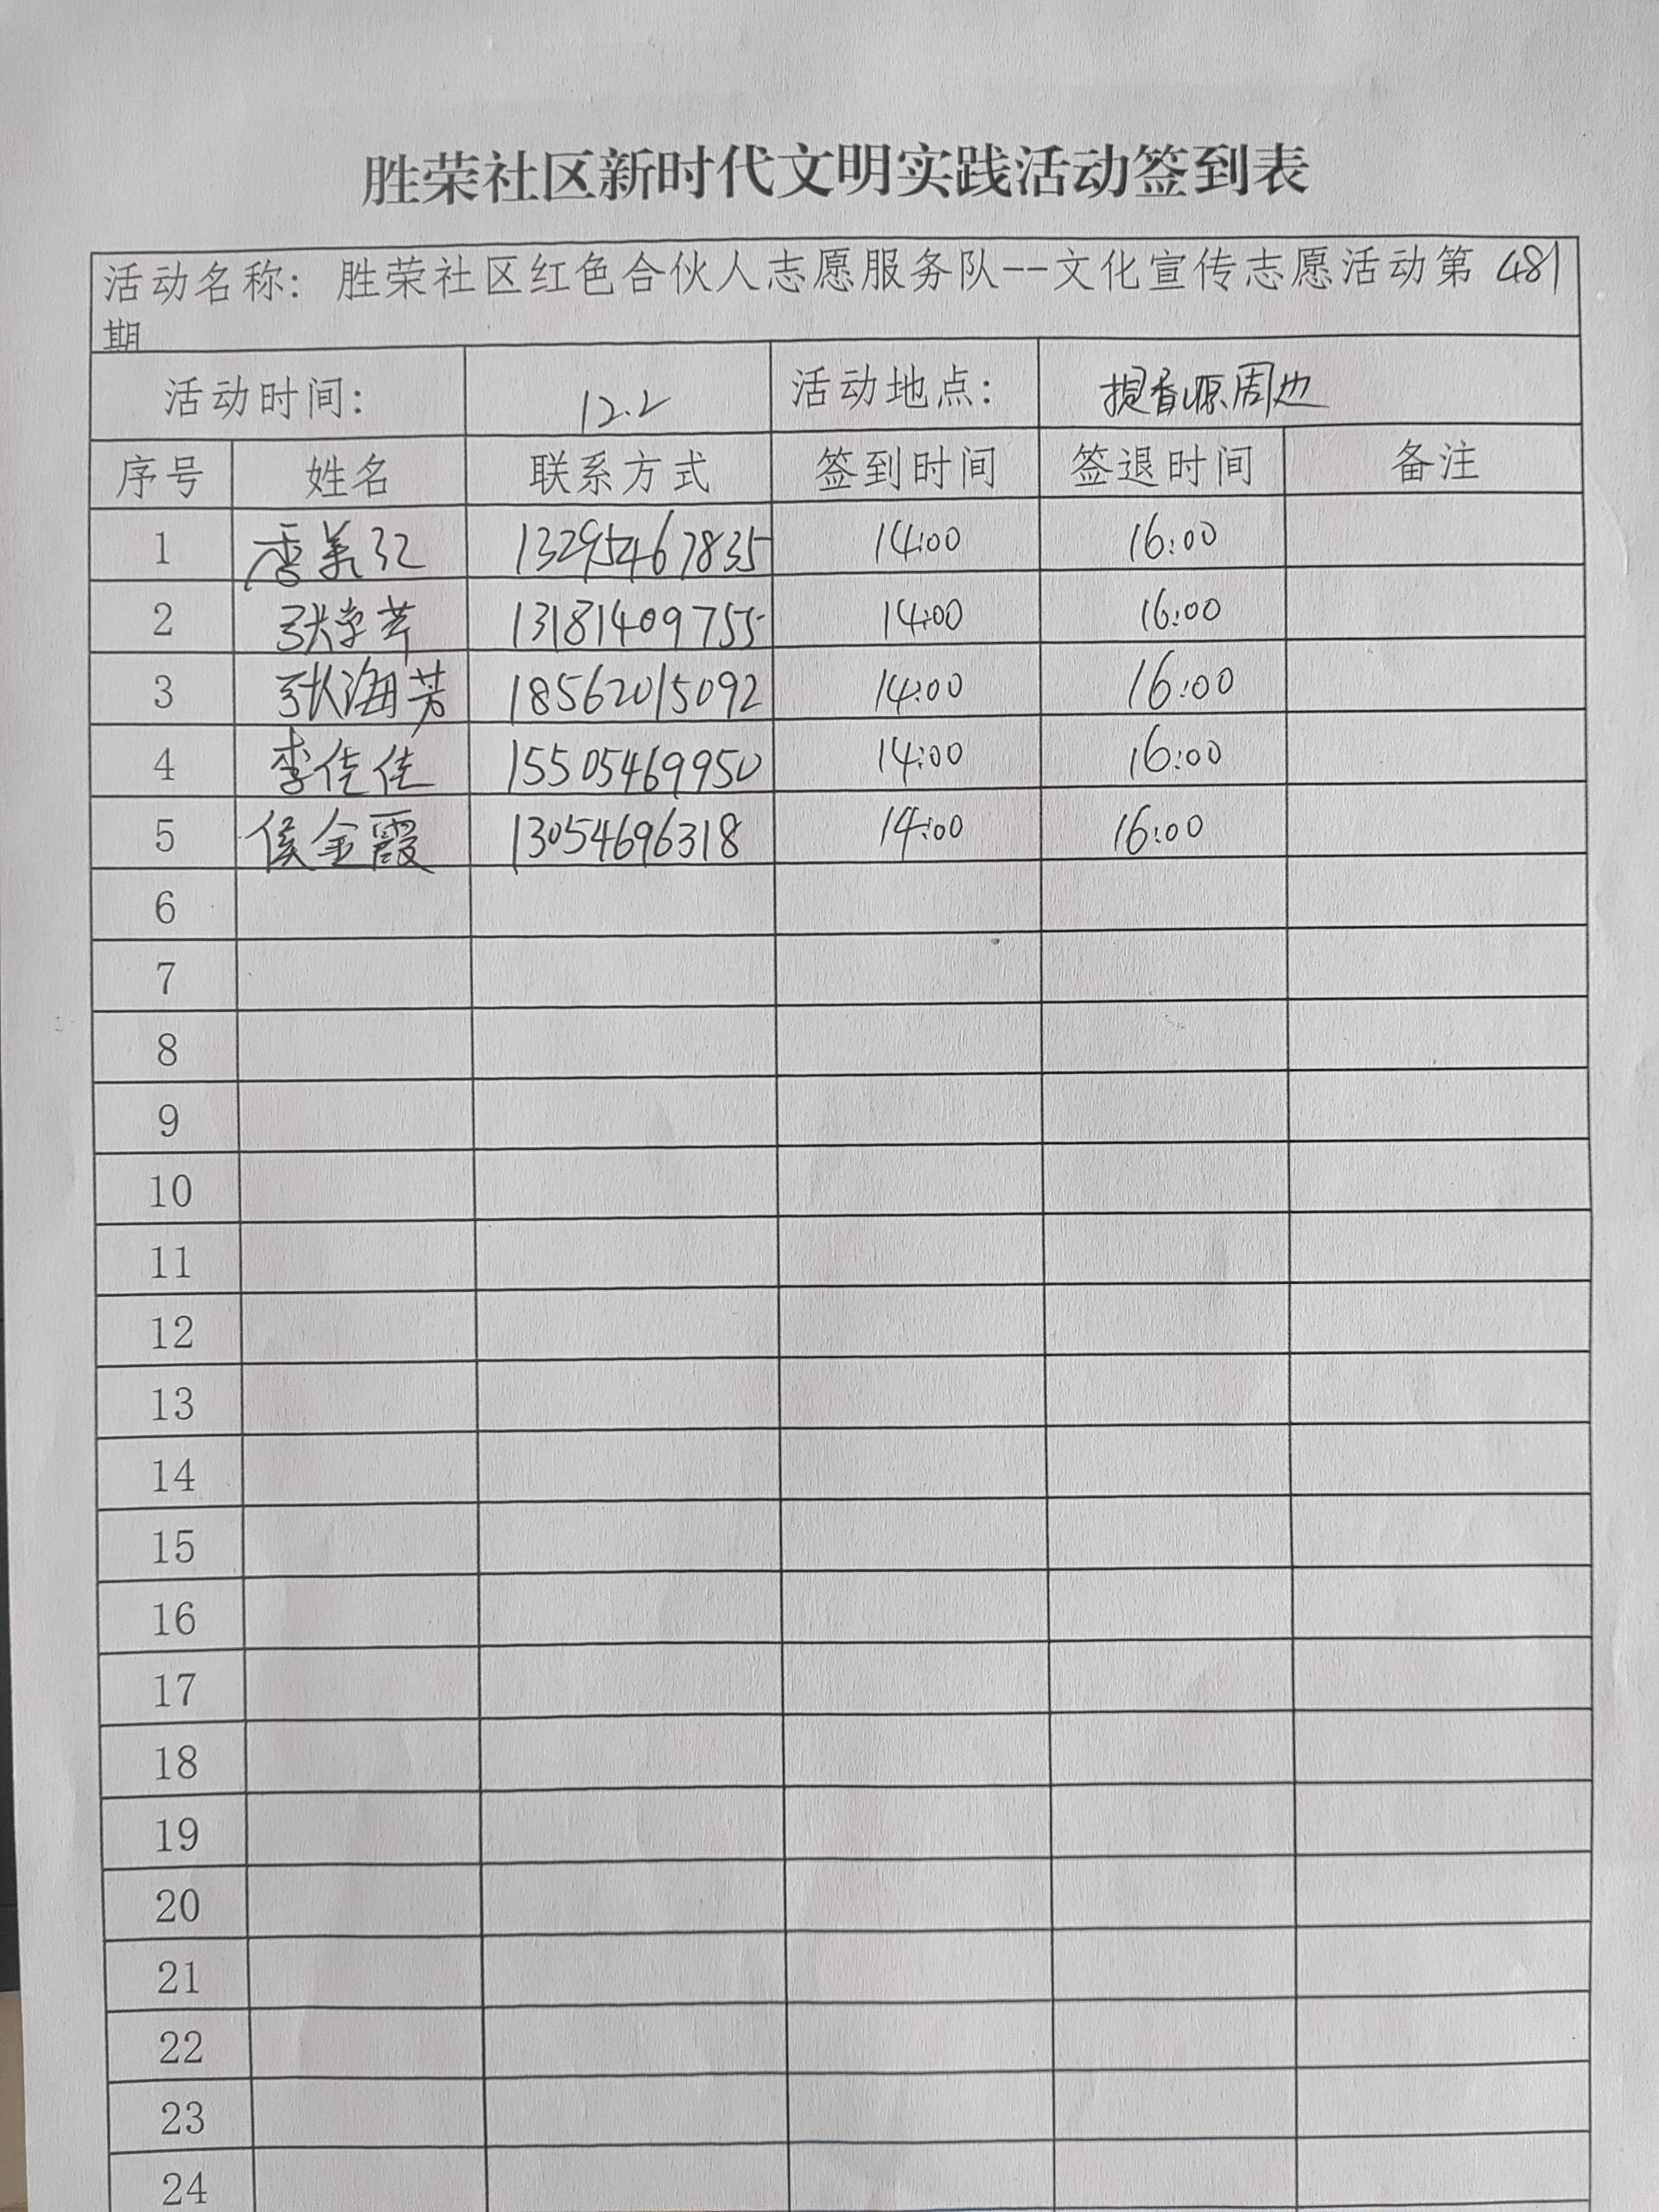 胜荣社区新时代文明实践活动签到表
活动名称：胜荣社区红色合伙人志愿服务队--文化宣传志愿活动第 481
期
活动时间： 12.2 活动地点： 提香源周边
序号 姓名 联系方式 签到时间 签退时间 备注
1 李美红 13295467835 14:00 16:00
2 张学芹 13181409755 14:00 16:00
3 张海芳 18562015092 14:00 16:00
4 李佳佳 15505469950 14:00 16:00
5 侯金霞 13054696318 14:00 16:00
6
7
8
9
10
11
12
13
14
15
16
17
18
19
20
21
22
23
24